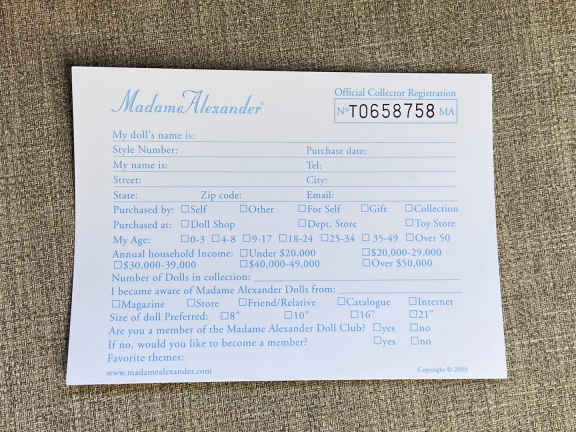 Madame Alexander®
Official Collector Registration
Nº T0658758 MA
My doll's name is:
Style Number: Purchase date:
My name is: Tel:
Street: City:
State: Zip code: Email:
Purchased by: □Self □Other □For Self □Gift □Collection
Purchased at: □Doll Shop □Dept. Store □Toy Store
My Age: □0-3 □4-8 □9-17 □18-24 □25-34 □35-49 □Over 50
Annual household Income: □Under $20,000 □$20,000-29,000
□$30,000-39,000 □$40,000-49,000 □Over $50,000
Number of Dolls in collection:
I became aware of Madame Alexander Dolls from:
□Magazine □Store □Friend/Relative □Catalogue □Internet
Size of doll Preferred: □8" □10" □16" □21"
Are you a member of the Madame Alexander Doll Club? □yes □no
If no, would you like to become a member? □yes □no
Favorite themes:
www.madamealexander.com Copyright ©